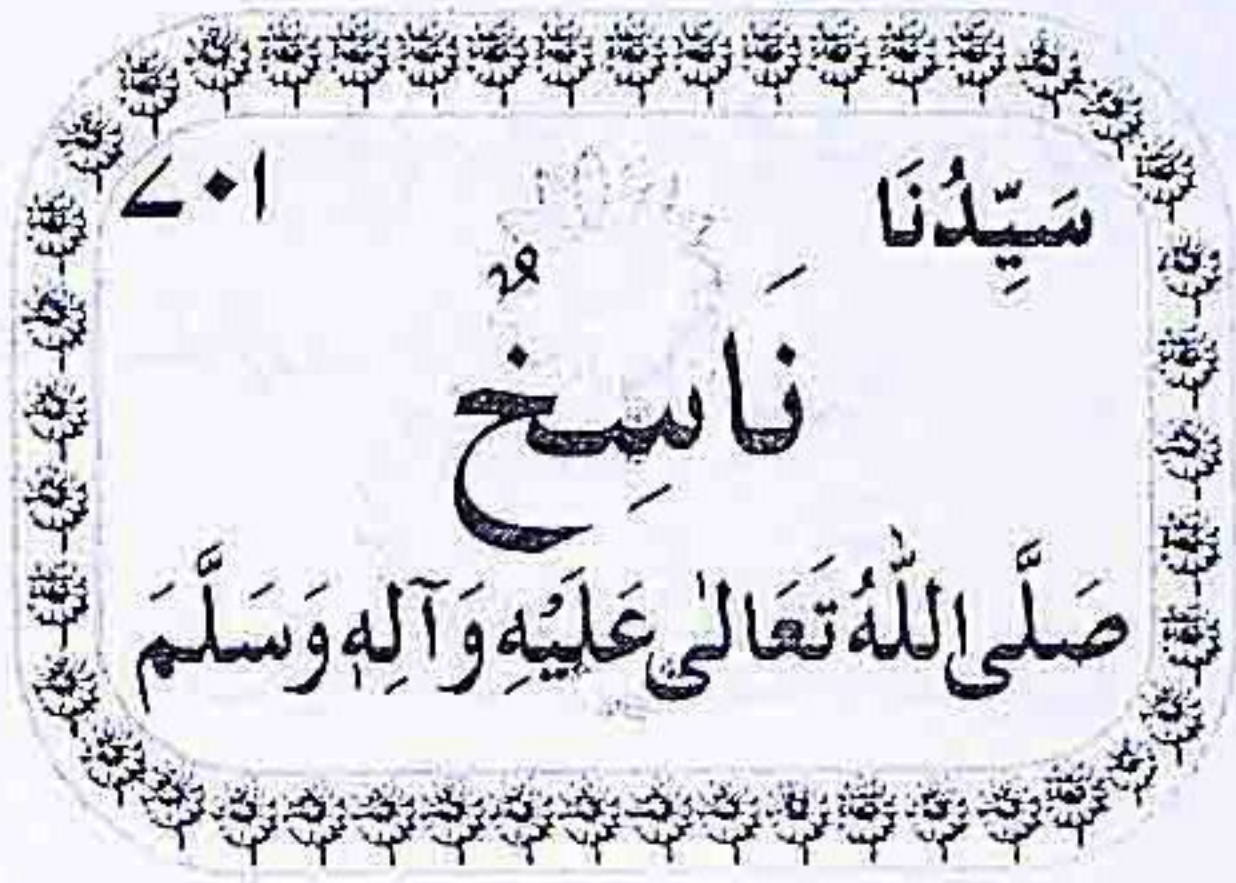 سَيِّدُنَا ۷۰۱
نَاسِخٌ
صَلَّى اللّٰهُ تَعَالٰى عَلَيْهِ وَآلِهٖ وَسَلَّمَ